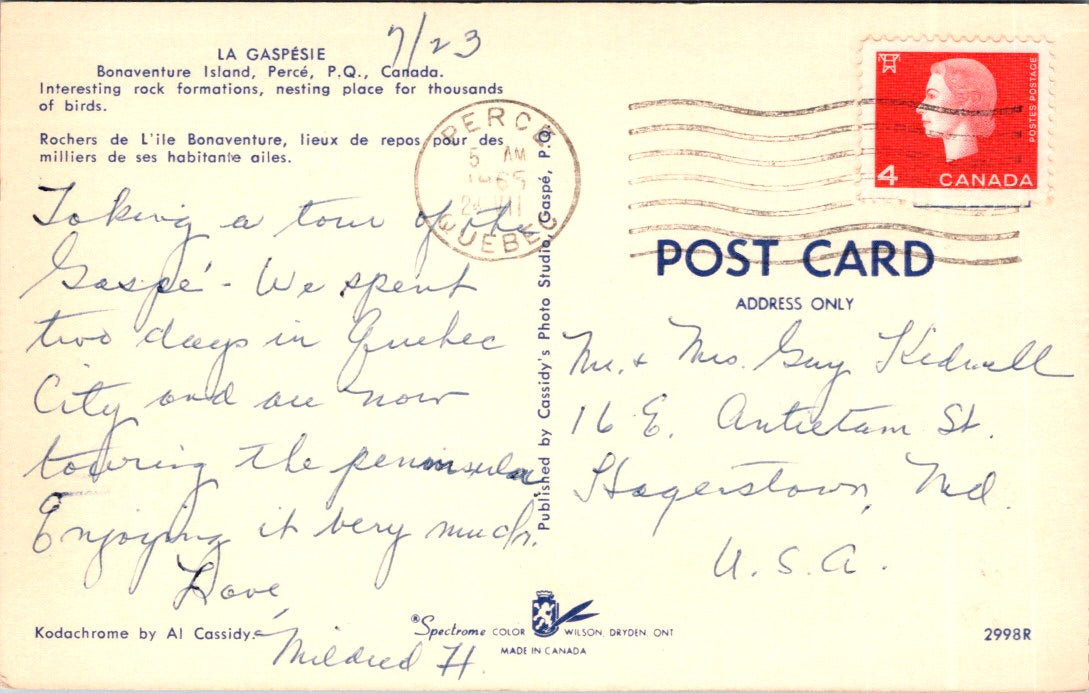 7/23
LA GASPÉSIE
Bonaventure Island, Percé, P.Q., Canada.
Interesting rock formations, nesting place for thousands
of birds.
Rochers de L'ile Bonaventure, lieux de repos pour des
milliers de ses habitante ailes.
Taking a tour of the
Gaspé - We spent
two days in Quebec
City and are now
touring the peninsula.
Enjoying it very much.
Love,
Mildred H.
Kodachrome by Al Cassidy.
Published by Cassidy's Photo Studio, Gaspé, P.Q.
PERCE
5 AM
1965
QUEBEC
POSTES POSTAGE
4 CANADA
POST CARD
ADDRESS ONLY
Mr. & Mrs. Guy Kidwell
16 E. Antietam St.
Hagerstown, Md.
U.S.A.
®Spectrome COLOR WILSON, DRYDEN, ONT
MADE IN CANADA
2998R